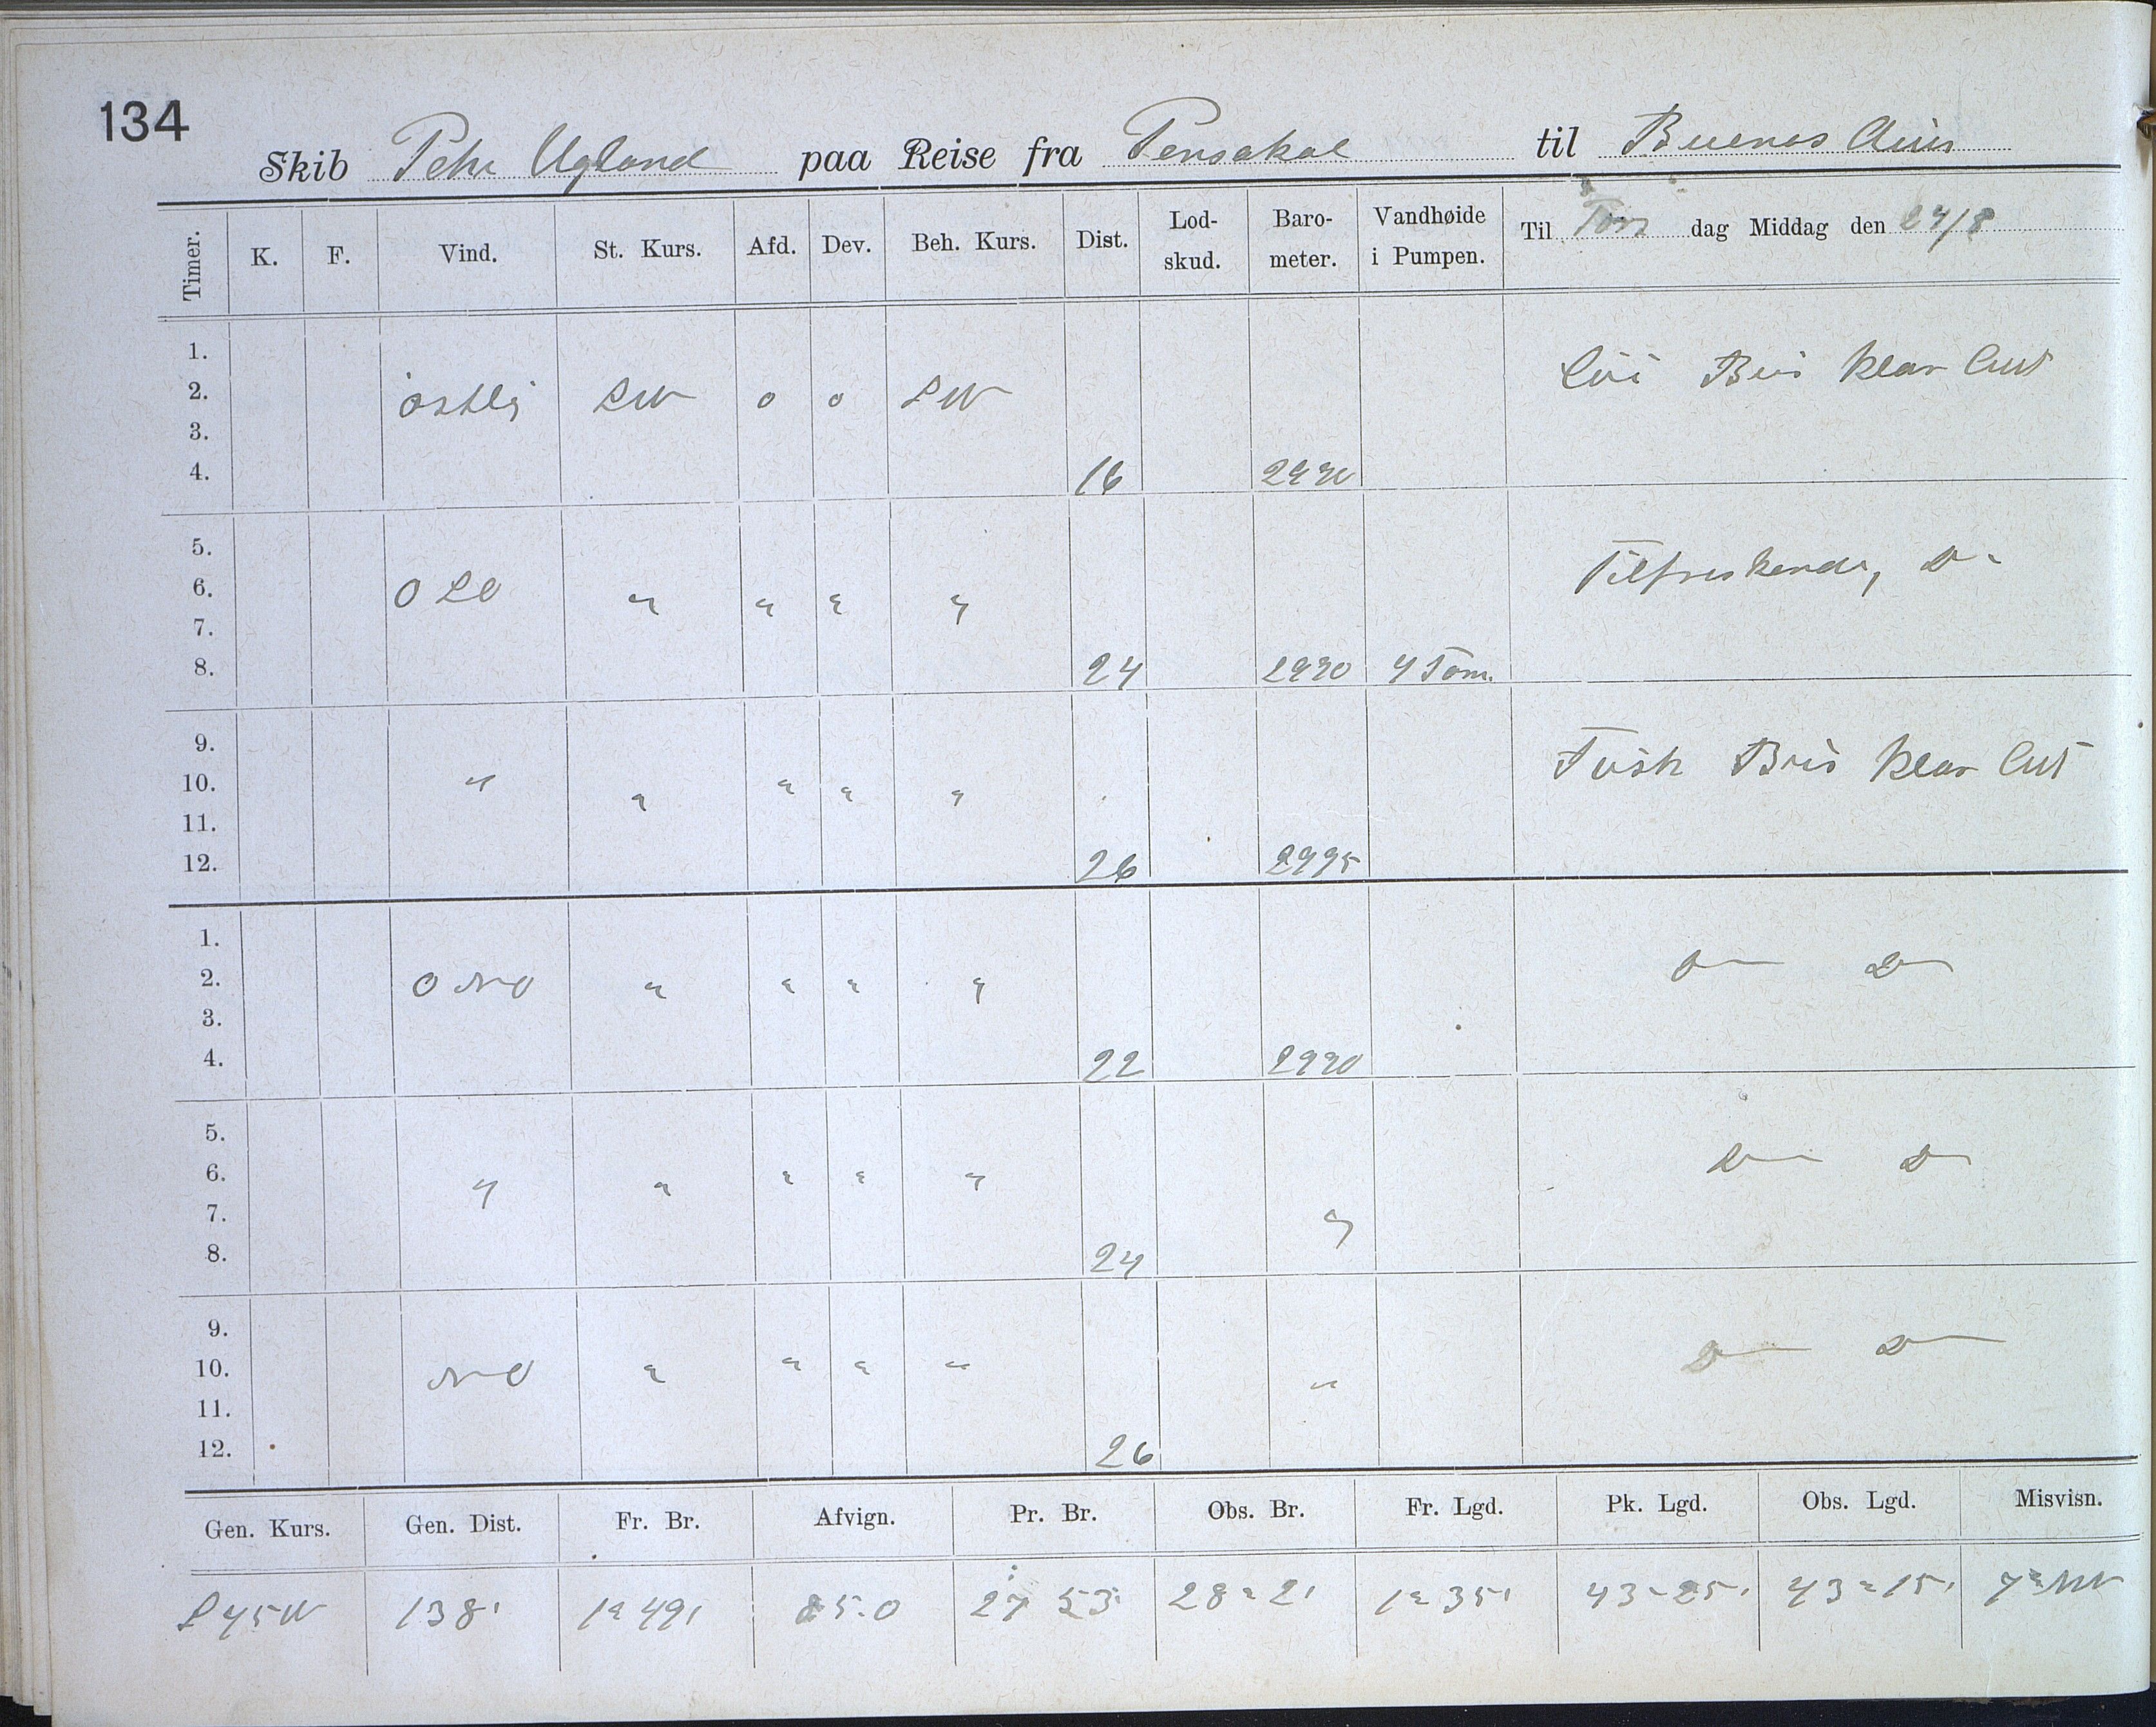 134
Skib Peter Ugland paa Reise fra Pensakol til Buenos Aires
Timer. K. F. Vind. St. Kurs. Afd. Dev. Beh. Kurs. Dist. Lod-skud. Baro-meter. Vandhøide i Pumpen. Til Tors dag Middag den 24/8
1.
2. östlig SW o o SW Bris klar Luft
3.
4. 16 2990
5.
6. O SO " " " " Tilfriskende, Do
7.
8. 24 2990 4 Tom.
9.
10. " " " " " Frisk Bris klar Luft
11.
12. 26 2995
1.
2. O NO " " " " Do Do
3.
4. 22 2990
5.
6. " " " " " Do Do
7. "
8. 24
9.
10. NO " " " " " Do Do
11.
12. 26
Gen. Kurs. Gen. Dist. Fr. Br. Afvign. Pr. Br. Obs. Br. Fr. Lgd. Pk. Lgd. Obs. Lgd. Misvisn.
S 45 W 138' 1° 49' 85.0 27 53 28° 2' 1° 35' 43° 25' 43° 15'